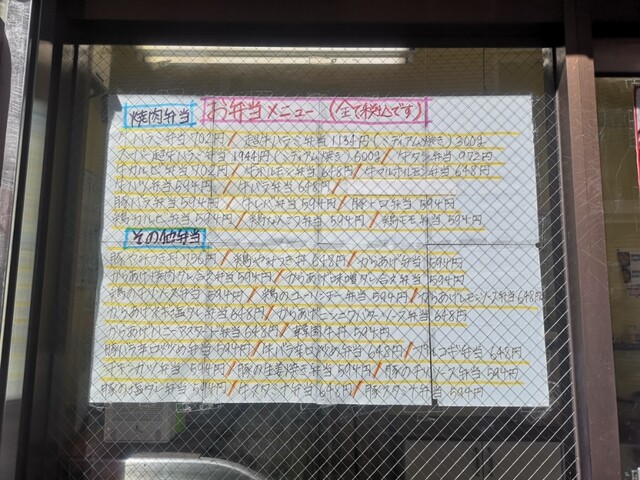 焼肉弁当 お弁当メニュー (全て税込です)
牛ハラミ弁当 702円 / 超牛ハラミ弁当 1134円 (ミディアム焼き) 300g
超牛ハラミ弁当 1944円 (ミディアム焼き) 600g / 牛タン弁当 972円
牛カルビ弁当 702円 / 牛ホルモン弁当 648円 / 牛マルホルモン弁当 648円
牛ハツ弁当 594円 / 牛バラ弁当 648円 /
豚バラ弁当 594円 / 牛レバー弁当 594円 / 豚トロ弁当 594円
鶏カルビ弁当 594円 / 鶏なんこつ弁当 594円 / 鶏モモ弁当 594円
その他弁当
豚やみつき丼 756円 / 鶏やみつき丼 648円 / からあげ弁当 594円
からあげ 弁当 594円 / からあげ味噌ダレ合え弁当 594円
鶏のチリソース弁当 594円 / 鶏のユーリンチー弁当 594円 / からあげレモンソース弁当 648円
からあげネギ塩ダレ弁当 648円 / からあげニンニクバターソース弁当 648円
からあげハニーマスタード弁当 648円 / 韓国牛丼 594円
豚バラ辛口炒め弁当 594円 / 牛バラ辛口炒め弁当 648円 / プルコギ弁当 648円
チキンカツ弁当 594円 / 豚の生姜焼き弁当 594円 / 豚のチリソース弁当 594円
豚の塩ダレ弁当 594円 / 牛スタミナ弁当 648円 / 豚スタミナ弁当 594円